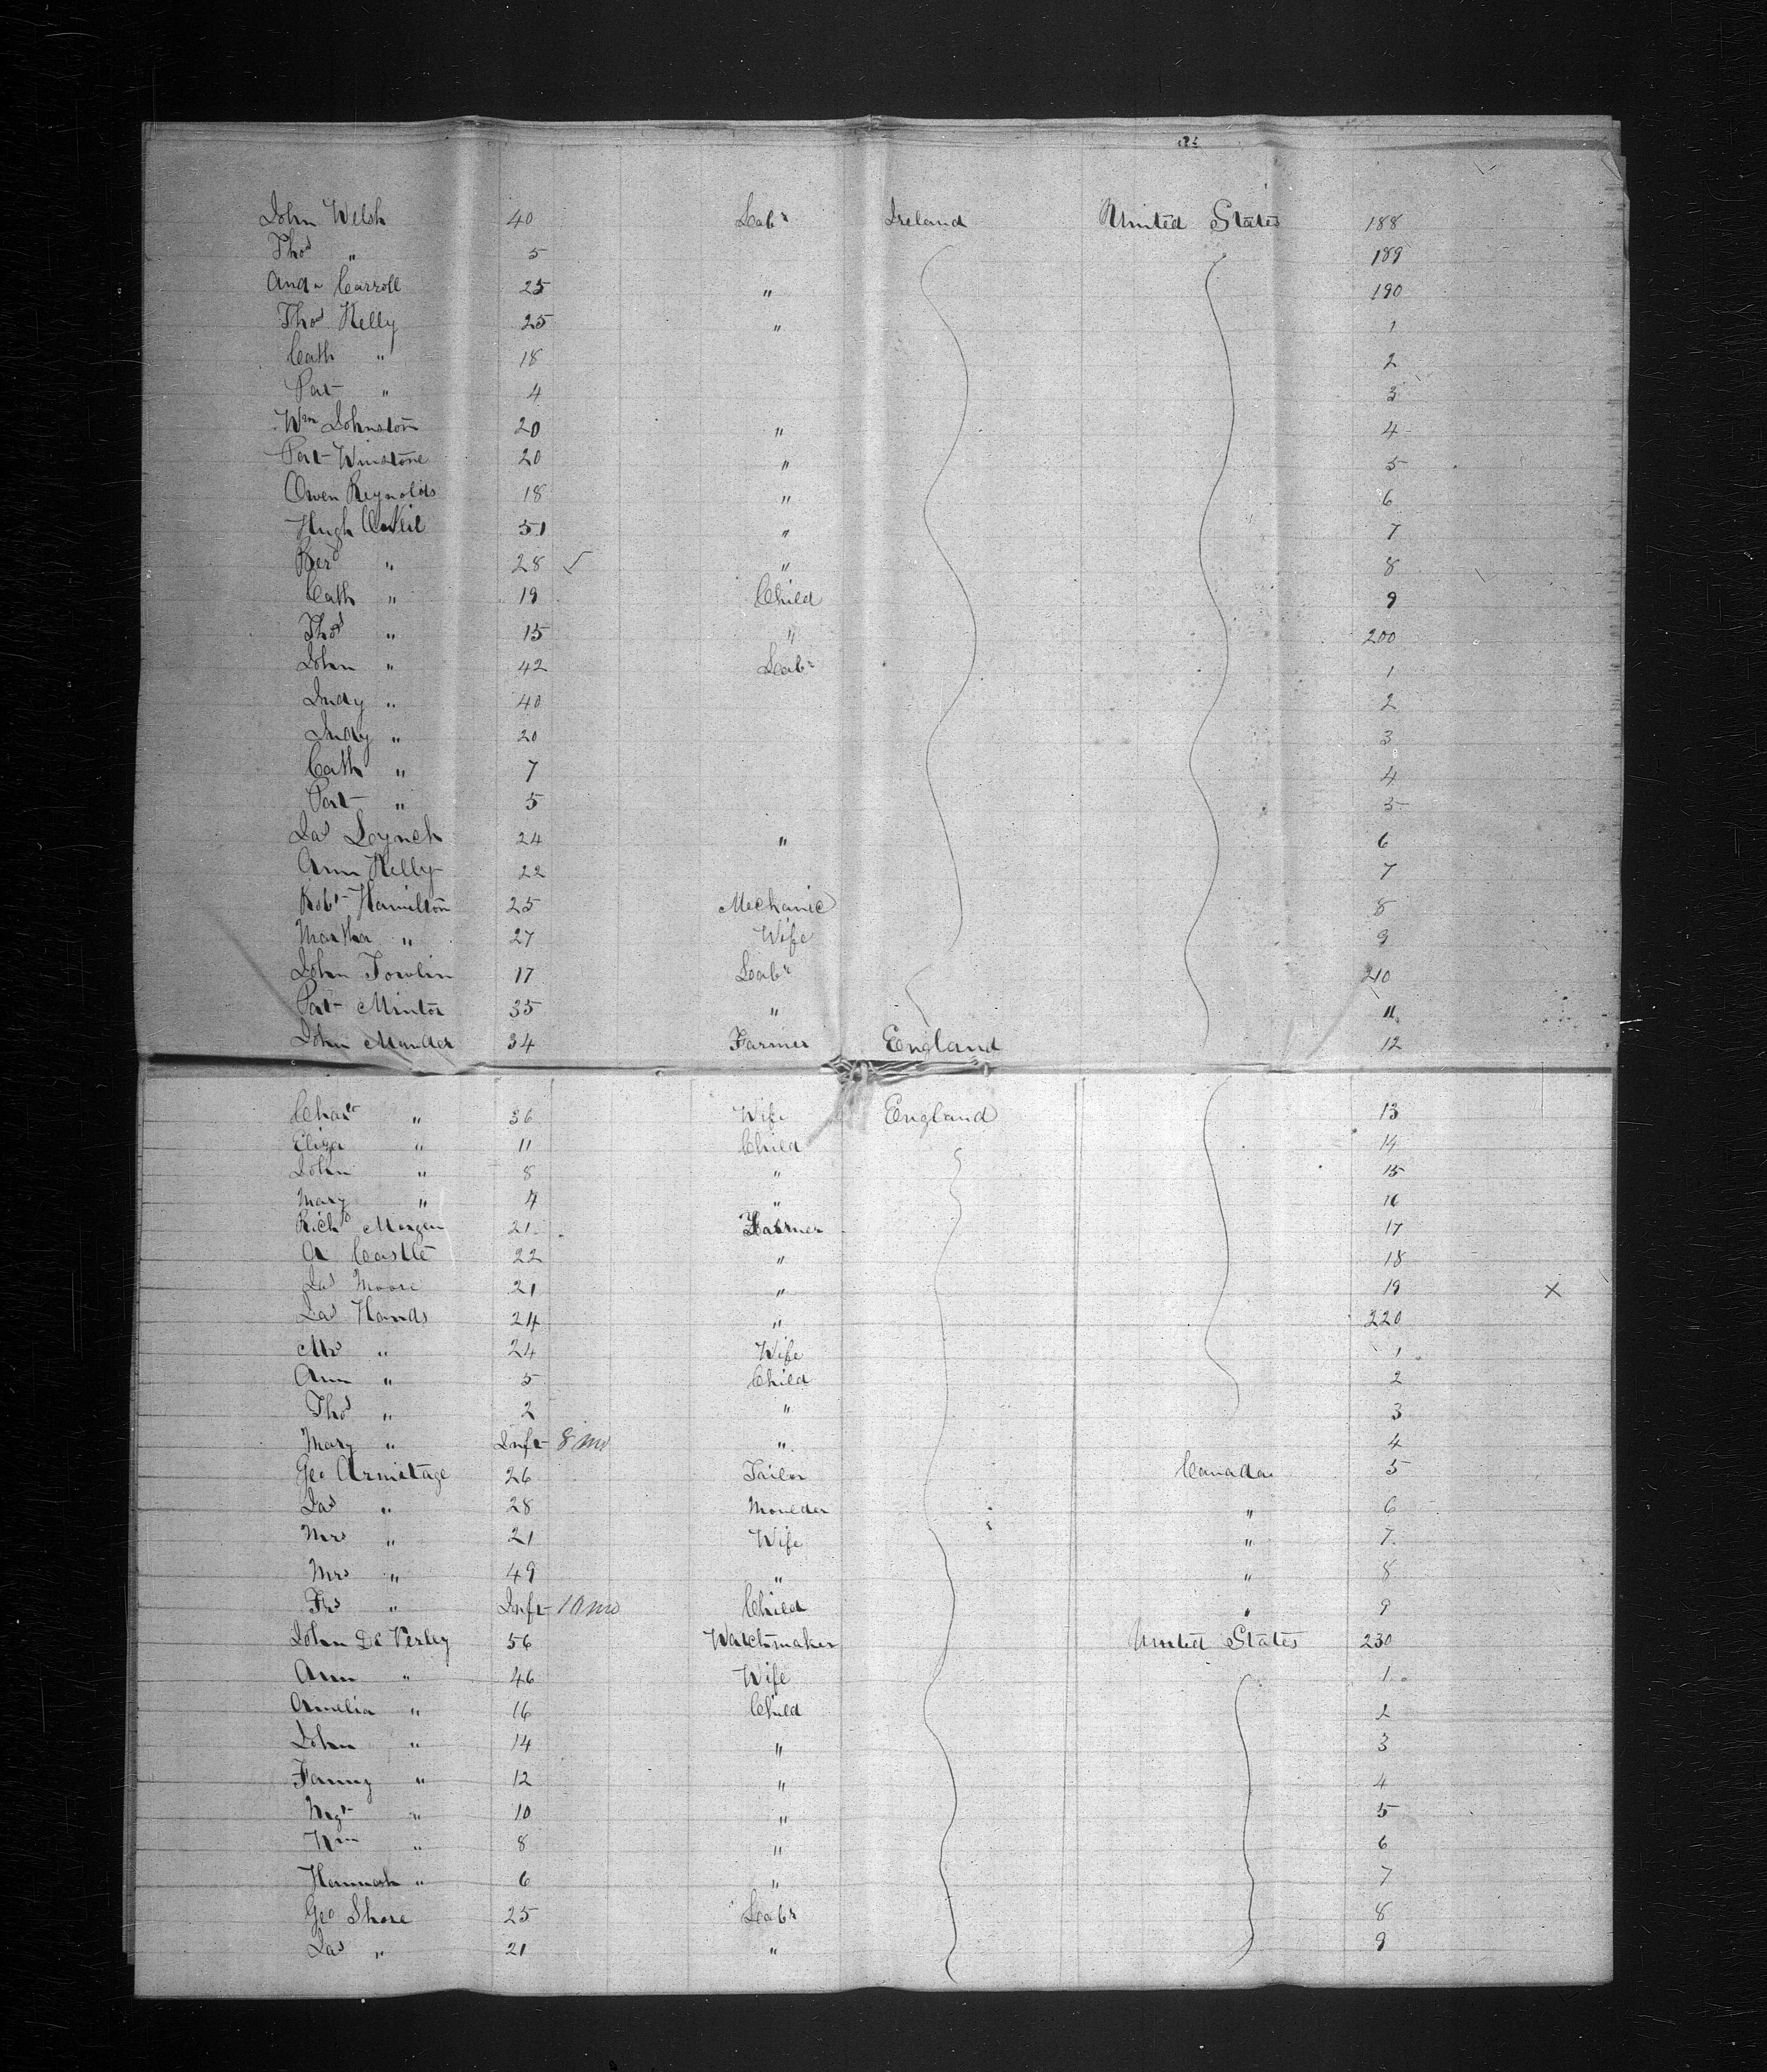 John Welsh 40 Labr Ireland United States 188
Thos " 5 189
Andw Carroll 25 " 190
Thos Kelly 25 " 1
Cath " 18 2
Pat " 4 3
Wm Johnston 20 " 4
Pat Winstone 20 " 5
Owen Reynolds 18 " 6
Hugh O'Neil 51 " 7
Berd " 28 ✓ " 8
Cath " 19 Child 9
Thos " 15 " 200
John " 42 Labr 1
Judy " 40 2
Judy " 20 3
Cath " 7 4
Pat " 5 5
Jas Leynch 24 " 6
Ann Kelly 22 7
Robt Hamilton 25 Mechanic 8
Martha " 27 Wife 9
John Towlin 17 Labr 210
Pat Minton 35 " 11
John Maulder 34 Farmer England 12
" 36 Wife England 13
Eliza " 11 Child 14
John " 8 " 15
Mary " 4 " 16
Richd Morgan 21 17
A Castle 22 " 18
Jas Moore 21 " 19 X
Jas Hands 24 " 220
Mrs " 24 Wife 1
Ann " 5 Child 2
Thos " 2 " 3
Mary " Inft 8 mo " 4
Geo Armitage 26 Tailor Canada 5
Jas " 28 Moulder " 6
Mrs " 21 Wife " 7
Mrs " 49 " " 8
Frs " Inft 10 mo Child " 9
John De Verley 56 Watchmaker United States 230
Ann " 46 Wife 1
Amelia " 16 Child 2
John " 14 " 3
Fanny " 12 " 4
Mgt " 10 " 5
Wm " 8 " 6
Hannah " 6 " 7
Geo Shore 25 Labr 8
Jas " 21 " 9